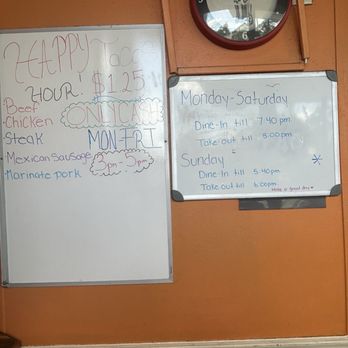 HAPPY Taco
HOUR! $1.25
Beef
Chicken
ONLY CASH
Steak
MON-FRI
Mexican Sausage
3pm-5pm
Marinate pork
Monday-Saturday
Dine-In till 7:40 pm
Take-out till 8:00pm
Sunday
Dine-In till 5:40pm
Take out till 6:00pm
Have a great day